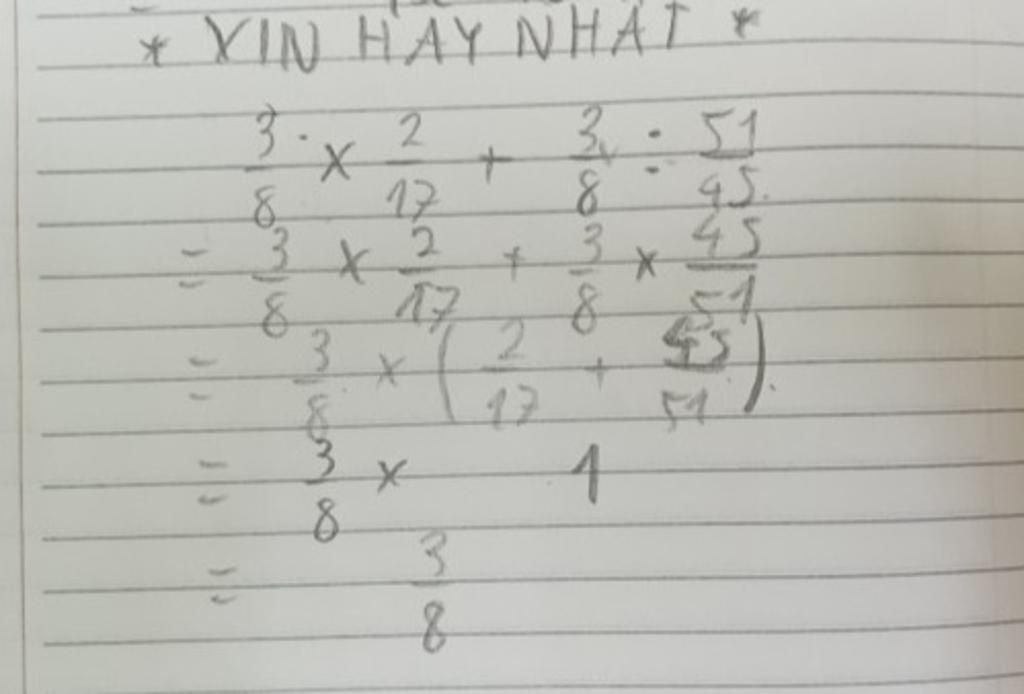 * XIN HAY NHẤT *
3/8 × 2/17 + 3/8 : 51/45
= 3/8 × 2/17 + 3/8 × 45/51
= 3/8 × (2/17 + 45/51)
= 3/8 × 1
= 3/8